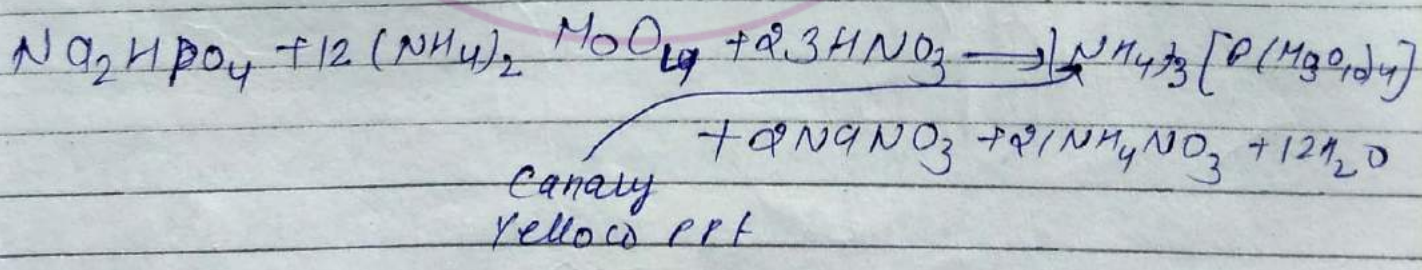 Na₂HPO₄ + 12 (NH₄)₂ MoO₄ + 23HNO₃ ⟶ (NH₄)₃ [P(Mo₃O₁₀)₄]
+ 2NaNO₃ + 21NH₄NO₃ + 12H₂O
Canary
Yellow PPt